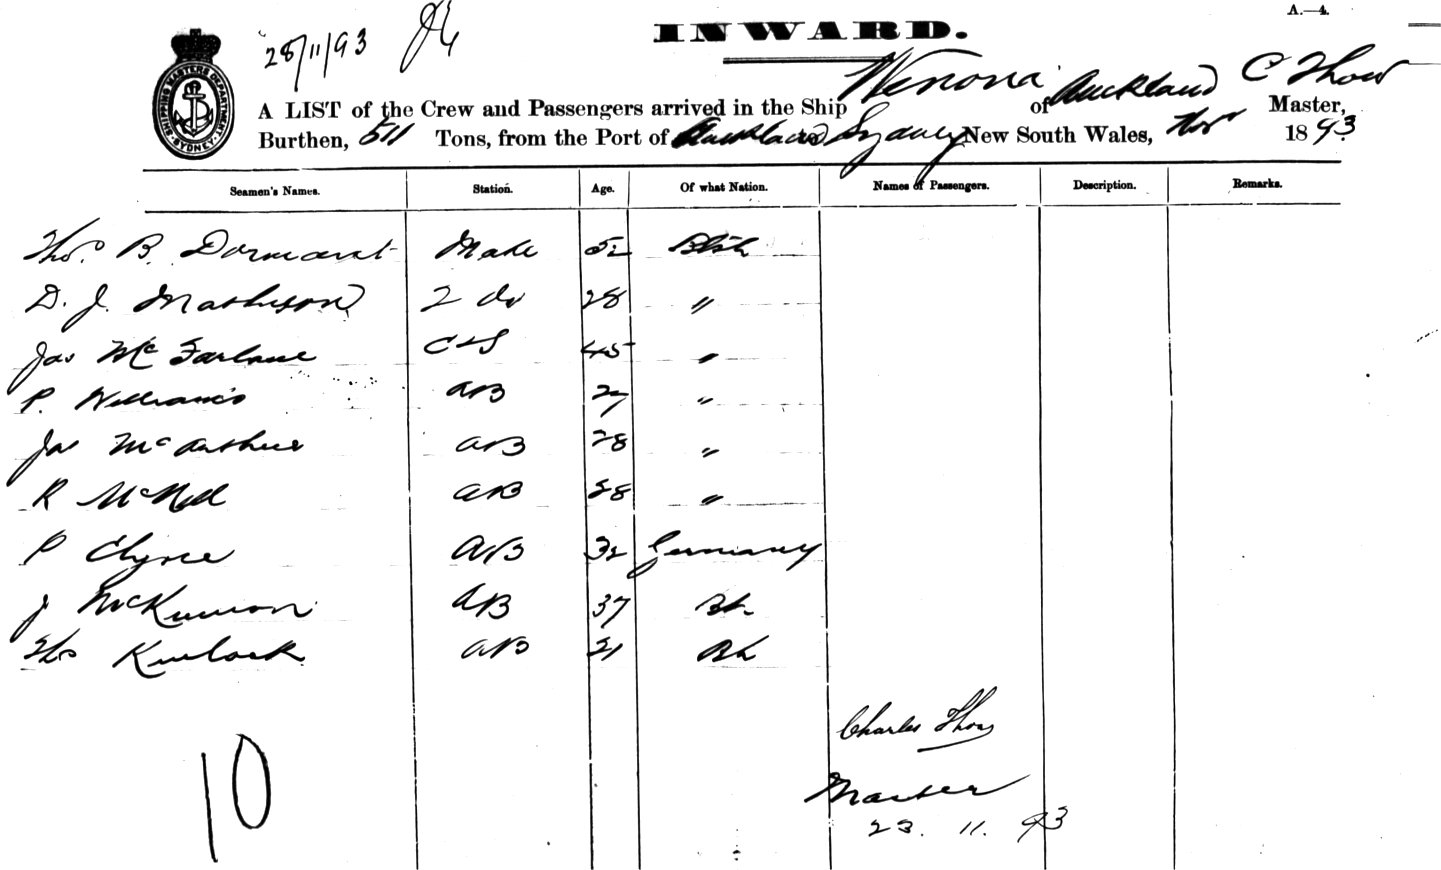 A.—4.
28/11/93
INWARD.
A LIST of the Crew and Passengers arrived in the Ship Wenona of Auckland C Thow Master,
Burthen, 511 Tons, from the Port of Auckland Sydney New South Wales, Nov 1893
SHIPPING MASTERS DEPARTMENT SYDNEY
Seamen's Names. Station. Age. Of what Nation. Names of Passengers. Description. Remarks.
Thos. B. Mate 52 Btsh
D. J. Mathieson 2 do 28 "
Jas McFarlane C & S 45 "
P. Williams AB 27 "
Jas McArthur AB 28 "
R McNeil AB 28 "
P Clyne AB 32 Germany
J McKinnon AB 37 Bh
Thos AB 21 Bh
Charles Thow
Master
23. 11. 93
10